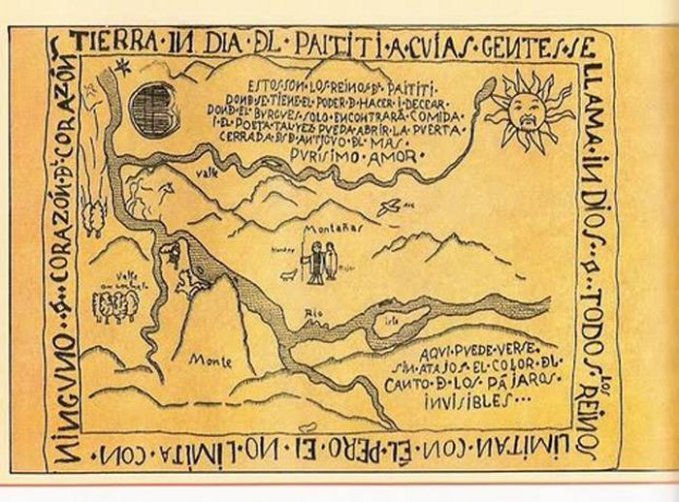 TIERRA·IN DIA·ĐL·PAITITI·A·CVIAS·GENTES·SE
LLAMA·INDIOS··TODOS LOS REINOS
LIMITAN·CON·ÉL·PERO·EI·NO·LIMITA·CON·
NINGVNO··CORAZÓN·Đ·CORAZÓN
ESTOS·SON·LOS·REINOS·Đ·PAITITI·
DONĐ·SE·TIENE·EL·PODER·Đ·HACER·I·DECEAR·
DONĐ·EL·BVRGVES·SOLO·ENCONTRARÁ·COMIDA·
I·EL·POETA·TALVEZ·PVEDA·ABRIR·LA·PVERTA·
CERRADA·ĐSĐ·ANTIGVO·ĐL·MAS·
PVRISIMO·AMOR·
Valle
Ave
Montañas
Hombre
Mujer
Valle
Rio
isla
Monte
AQVI·PVEDE·VERSE·
SIN·ATAJOS·EL·COLOR·ĐL·
CANTO·Đ·LOS·PÁJAROS·
INVISIBLES...